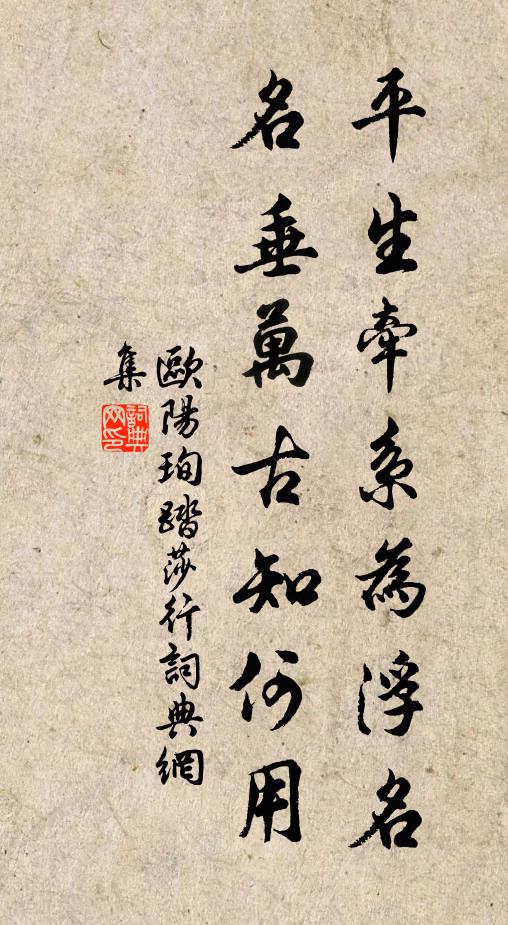 平生牽系為浮名
名垂萬古知何用
歐陽珣踏莎行詞典網
集
詞典
网印